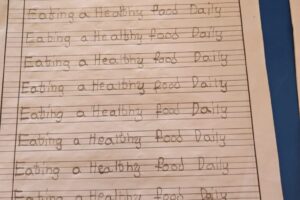 Eating a Healthy food Daily
Eating a Healthy food Daily
Eating a Healthy food Daily
Eating a Healthy food Daily
Eating a Healthy food Daily
Eating a Healthy food Daily
Eating a Healthy food Daily
Eating a Healthy food Daily